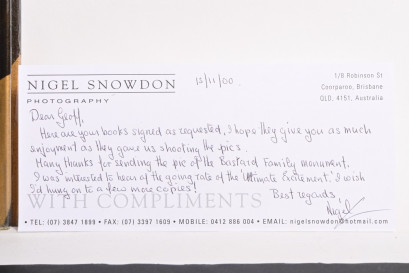 15/11/00
1/0 Robinson St
NIGEL SNOWDON
Coorparoo, Brisbane
PHOTOGRAPHY
QLD, 4151, Australia
Dear Geoff,
Here are your books signed as requested, I hope they give you as much
enjoyment as they gave us shooting the pics.
Many thanks for sending the pic of the Bastard Family monument.
I was interested to hear of the going rate of the 'Ultimate Excitement'. I wish
I'd hung on to a few more copies!
Best regards
WITH COMPLIMENTS
Nigel
• TEL: (07) 3847 1899 • FAX: (07) 3397 1609 • MOBILE: 0412 886 004 • EMAIL: nigelsnowdon@hotmail.com